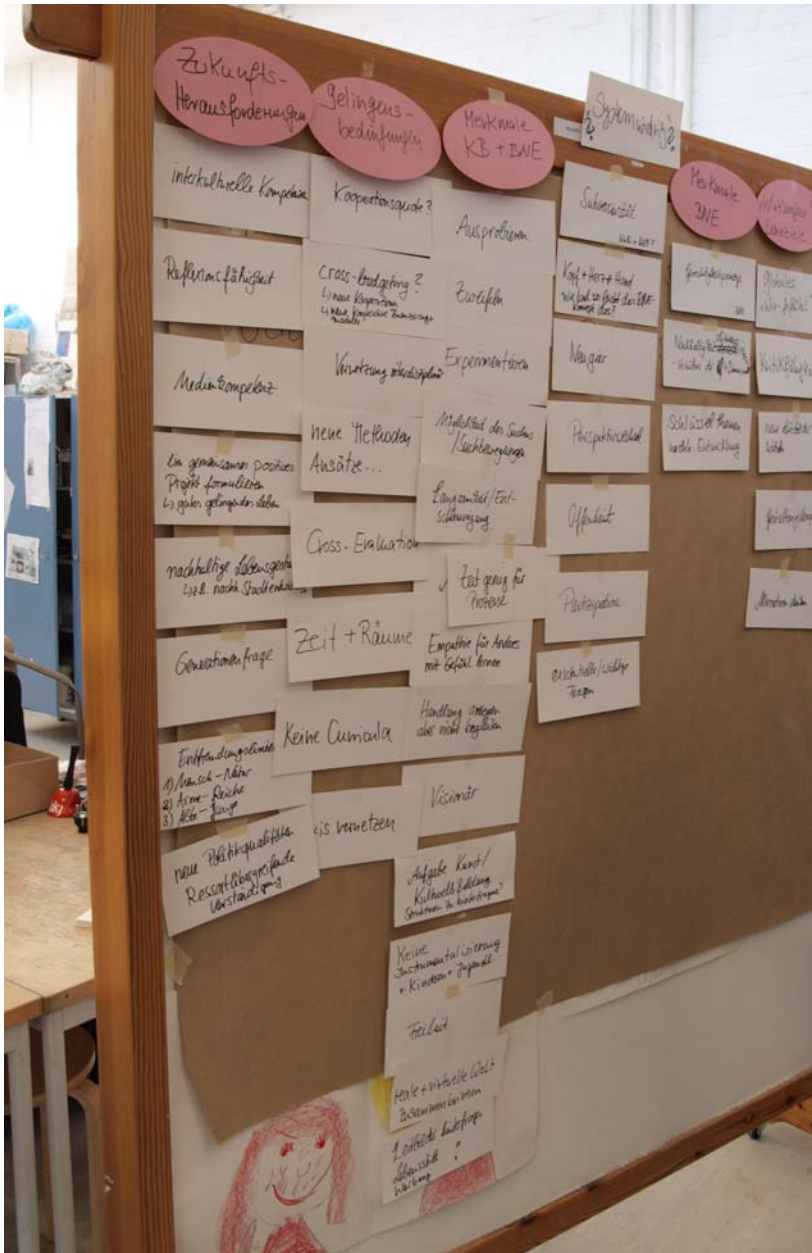 Zukunfts-
Herausforderungen
interkulturelle Kompetenz
Reflexionsfähigkeit
Medienkompetenz
ein gemeinsames positives
Projekt formulieren
↳ gutes gelingendes Leben
nachhaltige Lebensgesta
↳ z.B. nachh. Stadtentwick
Generationenfrage
1) Mensch - Natur
2) Arme - Reiche
3) Alte - Junge
neue Politikqualitäten
Ressortübergreifende
Verständigung
Gelingens-
bedingungen
Kooperationsguide?
Cross-budgeting?
↳ neue Kooperation
Vernetzung interdisziplinär
neue Methoden
Ansätze...
Cross-Evaluation
Zeit + Räume
Keine Curricula
xis vernetzen
Merkmale
KB + BNE
Ausprobieren
Zweifeln
Experimentieren
Möglichkeit des Suchens
/Suchbewegungen
Langsamkeit/Ent-
schleunigung
Zeit genug für
Prozesse
Empathie für Anderes
mit Gefühl lernen
Handlung
aber nicht
Visionär
Aufgabe Kunst/
Kulturelle Bildung
Strukturen zu hinterfragen?
Keine
Instrumentalisierung
v. Kindern + Jugendl.
Freiheit
reale + virtuelle Welt
zusammenbringen
Leitbilder hinterfragen
Lebensstile
Werbung
? Systemwidrig ?
Subversivität
Kopf + Herz + Hand
Neugier
Perspektivwechsel
Offenheit
Partizipation
existentielle/wichtige
Fragen
Merkmale
BNE
BNE
Schlüsselthemen
nachh. Entwicklung
globales
Wir-Gefühl
Kritikfähigk
Alternativen denken